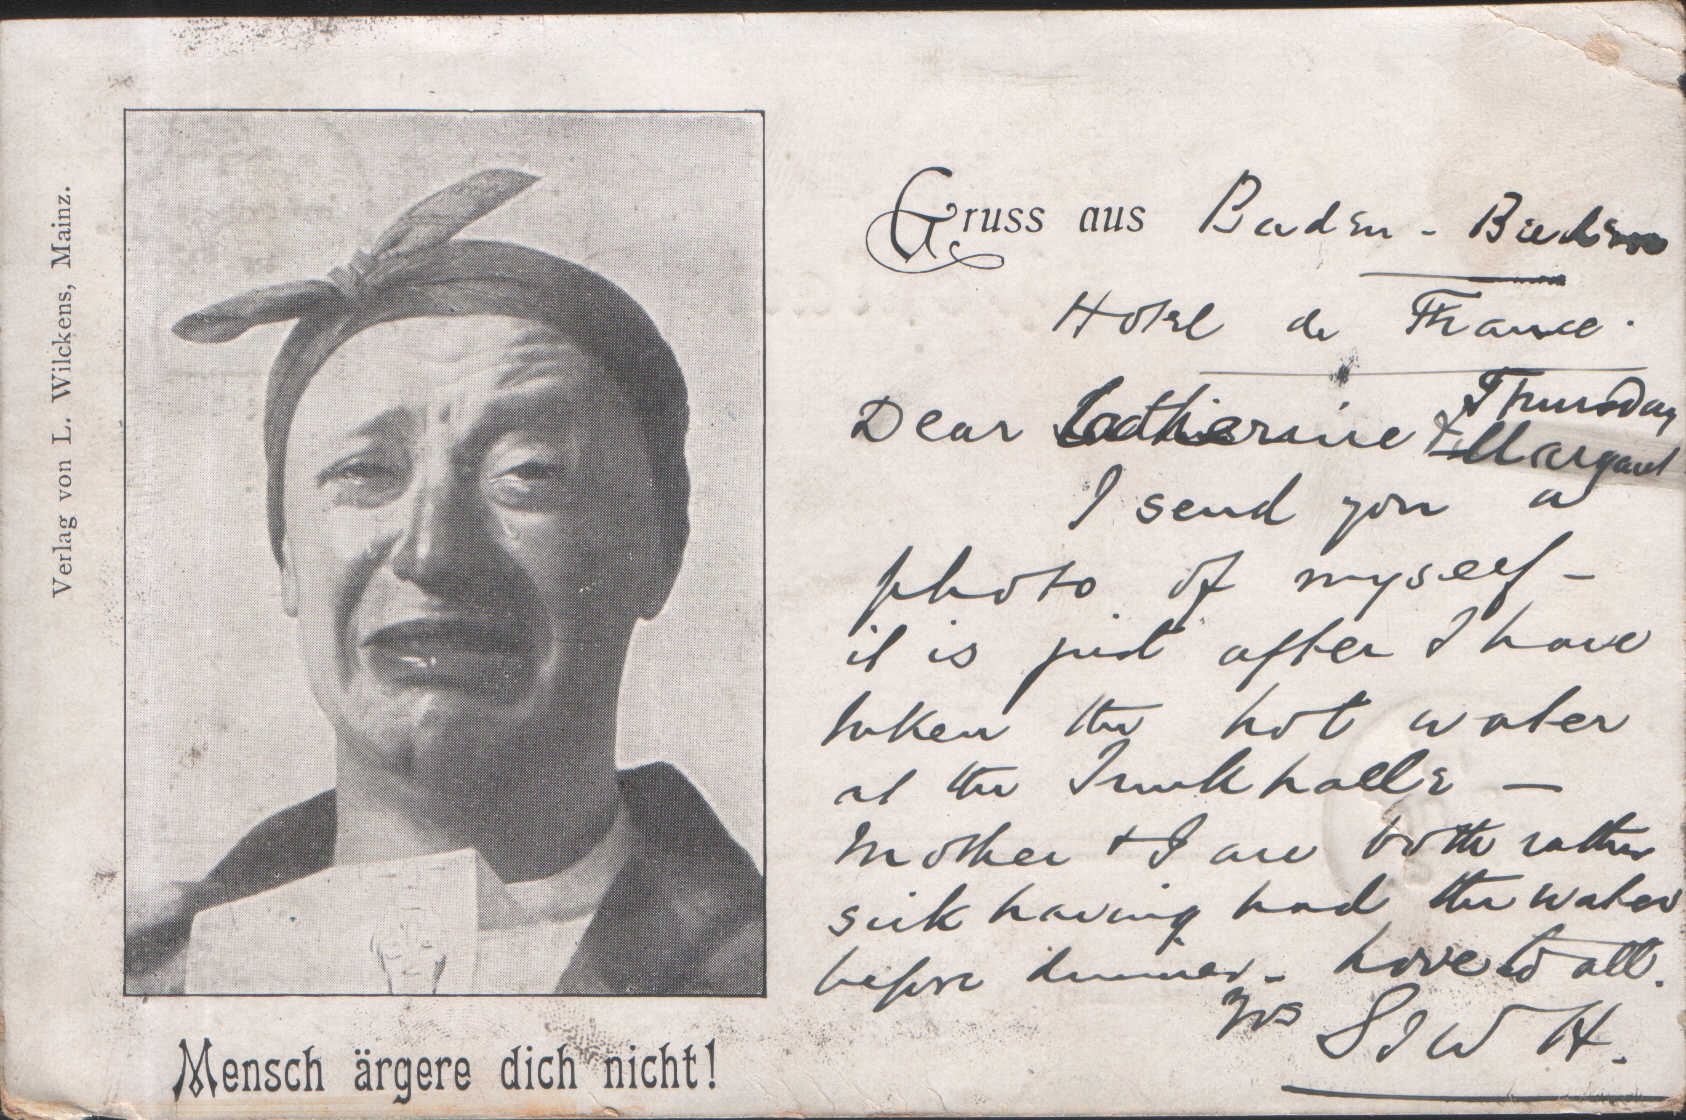 Verlag von L. Wilckens, Mainz.
Mensch ärgere dich nicht!
Gruss aus Baden-
Hotel de France.
Thursday
Dear Catherine & Margaret
I send you a
photo of myself –
it is just after I have
taken the hot water
at the Trinkhalle –
Mother & I are both rather
sick having had the water
before dinner – love to all.
Yrs